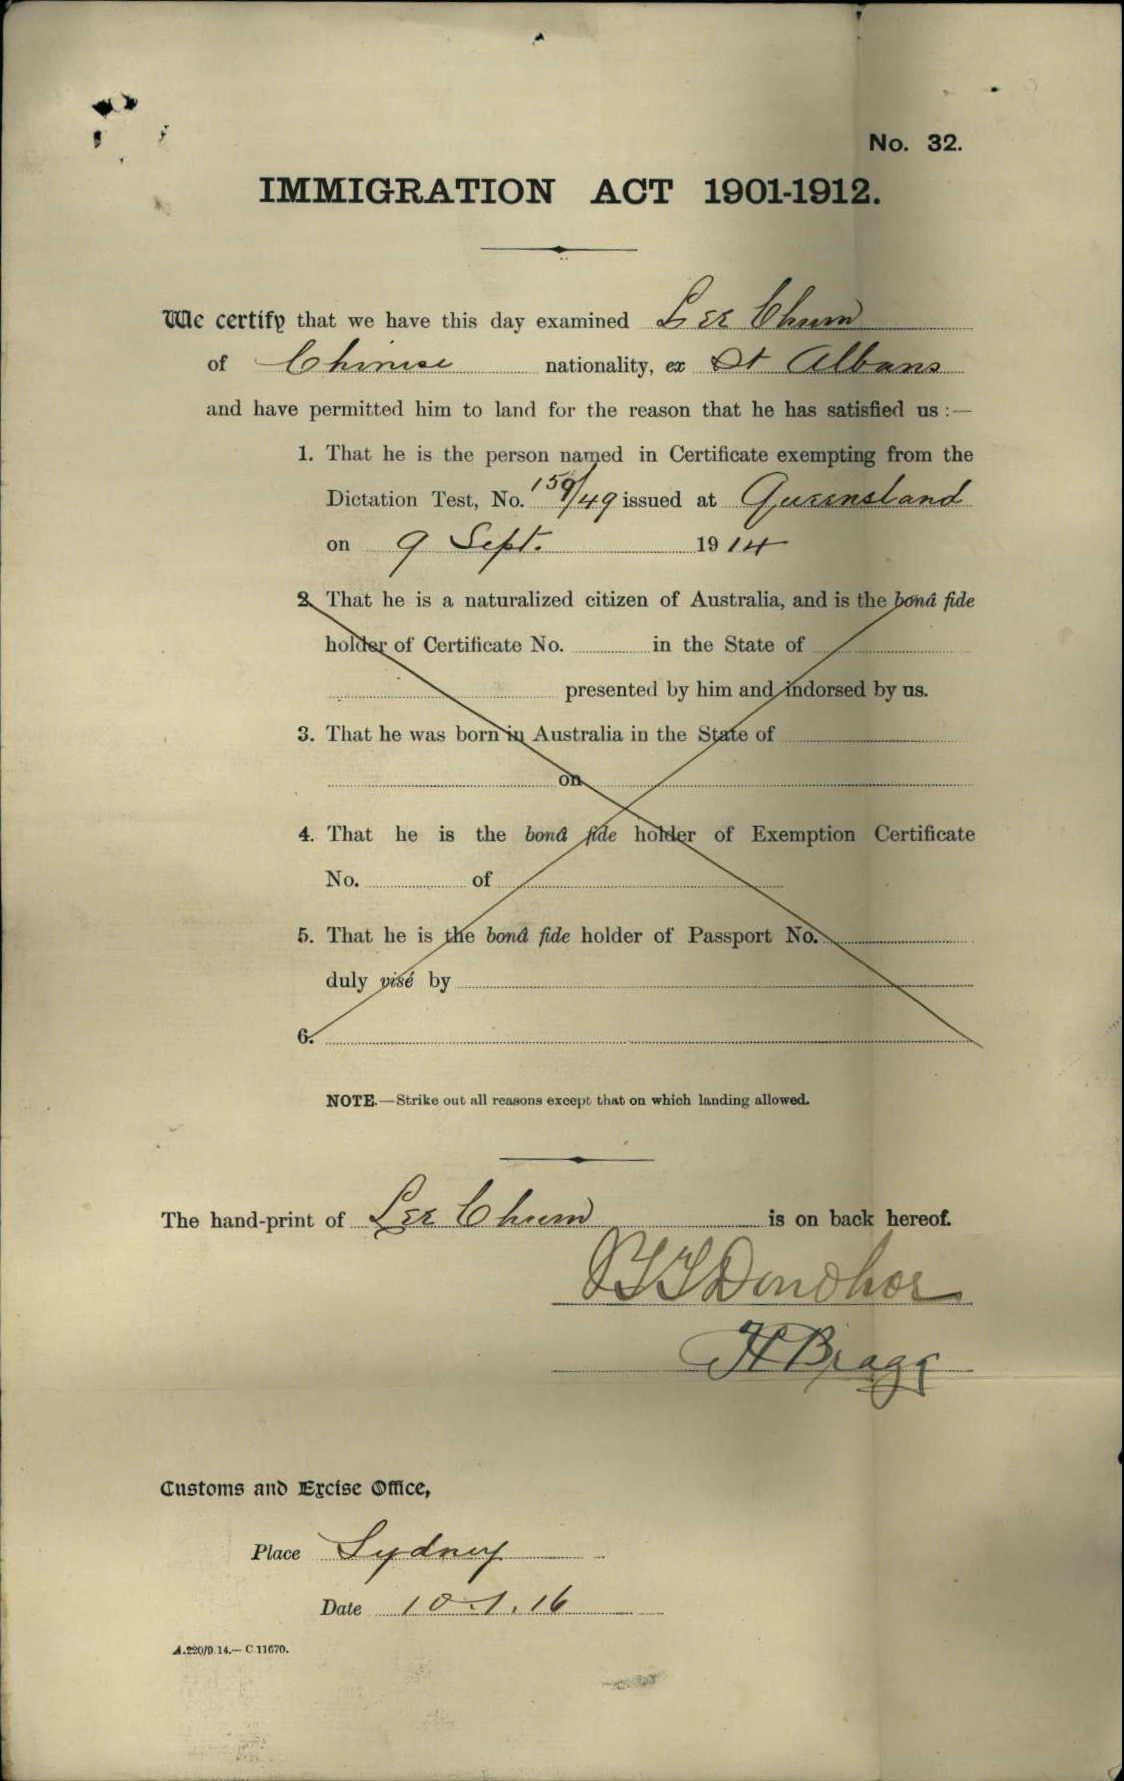 No. 32.
IMMIGRATION ACT 1901-1912.
We certify that we have this day examined Lee Chum
of Chinese nationality, ex St Albans
and have permitted him to land for the reason that he has satisfied us :—
1. That he is the person named in Certificate exempting from the
Dictation Test, No. 159/49 issued at Queensland
on 9 Sept. 1914
2. That he is a naturalized citizen of Australia, and is the bonâ fide
holder of Certificate No. in the State of
presented by him and indorsed by us.
3. That he was born in Australia in the State of
on
4. That he is the bonâ fide holder of Exemption Certificate
No. of
5. That he is the bonâ fide holder of Passport No.
duly visé by
6.
NOTE.—Strike out all reasons except that on which landing allowed.
The hand-print of Lee Chum is on back hereof.
Donohoe
H Bragg
Customs and Excise Office,
Place Sydney
Date 10.1.16
A.220/9.14.— C 11670.